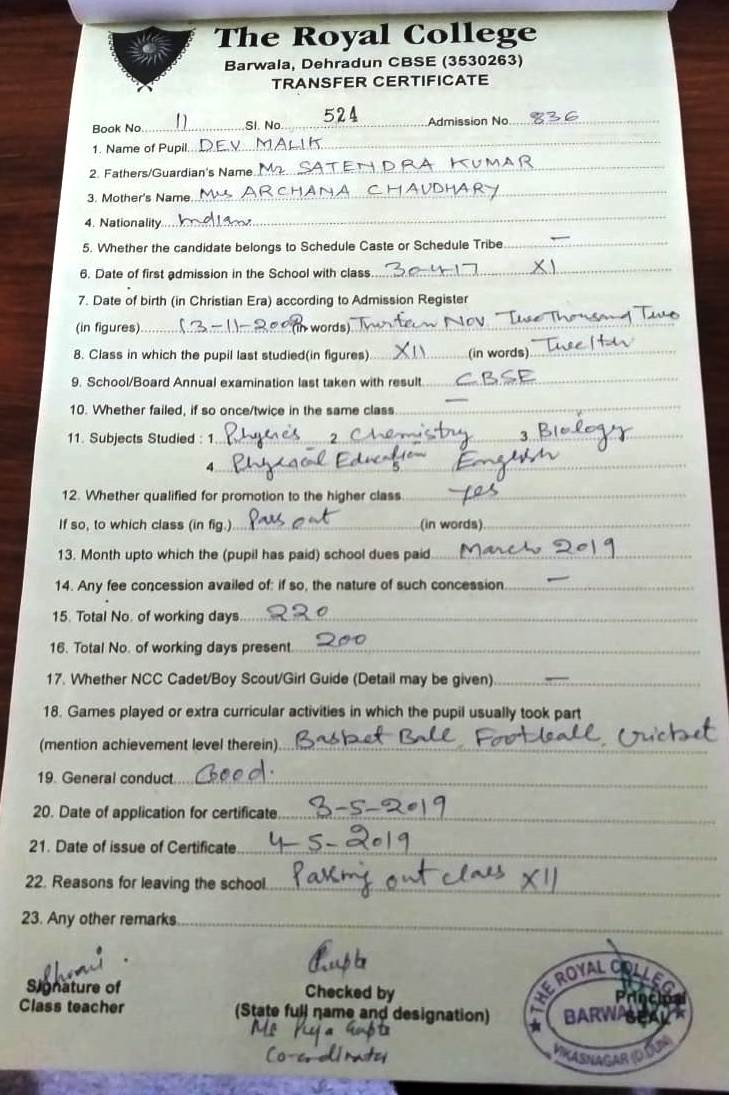 The Royal College
Barwala, Dehradun CBSE (3530263)
TRANSFER CERTIFICATE
Book No. 11 Sl. No. 524 Admission No. 836
1. Name of Pupil. DEV MALIK
2. Fathers/Guardian's Name Mr SATENDRA KUMAR
3. Mother's Name. Mrs ARCHANA CHAUDHARY
4. Nationality. Indian
5. Whether the candidate belongs to Schedule Caste or Schedule Tribe —
6. Date of first admission in the School with class. 30-4-17 XI
7. Date of birth (in Christian Era) according to Admission Register
(in figures) 13-11-2002 (in words) Thirteen Nov Two Thousand Two
8. Class in which the pupil last studied(in figures) XII (in words) Twelth
9. School/Board Annual examination last taken with result CBSE
10. Whether failed, if so once/twice in the same class —
11. Subjects Studied : 1. Physics 2 Chemistry 3. Biology
4 Physical Education 5 English
12. Whether qualified for promotion to the higher class. Yes
If so, to which class (in fig.) Pass out (in words)
13. Month upto which the (pupil has paid) school dues paid March 2019
14. Any fee concession availed of: if so, the nature of such concession —
15. Total No. of working days 220
16. Total No. of working days present 200
17. Whether NCC Cadet/Boy Scout/Girl Guide (Detail may be given) —
18. Games played or extra curricular activities in which the pupil usually took part
(mention achievement level therein) Basket Ball, Football, Cricket
19. General conduct Good.
20. Date of application for certificate 3-5-2019
21. Date of issue of Certificate 4-5-2019
22. Reasons for leaving the school Passing out class XII
23. Any other remarks
Signature of Class teacher
Gupta
Checked by
(State full name and designation)
Ms Puja Gupta
Co-ordinator
Principal
SEAL
THE ROYAL COLLEGE
BARWALA
VIKASNAGAR (D.DUN)